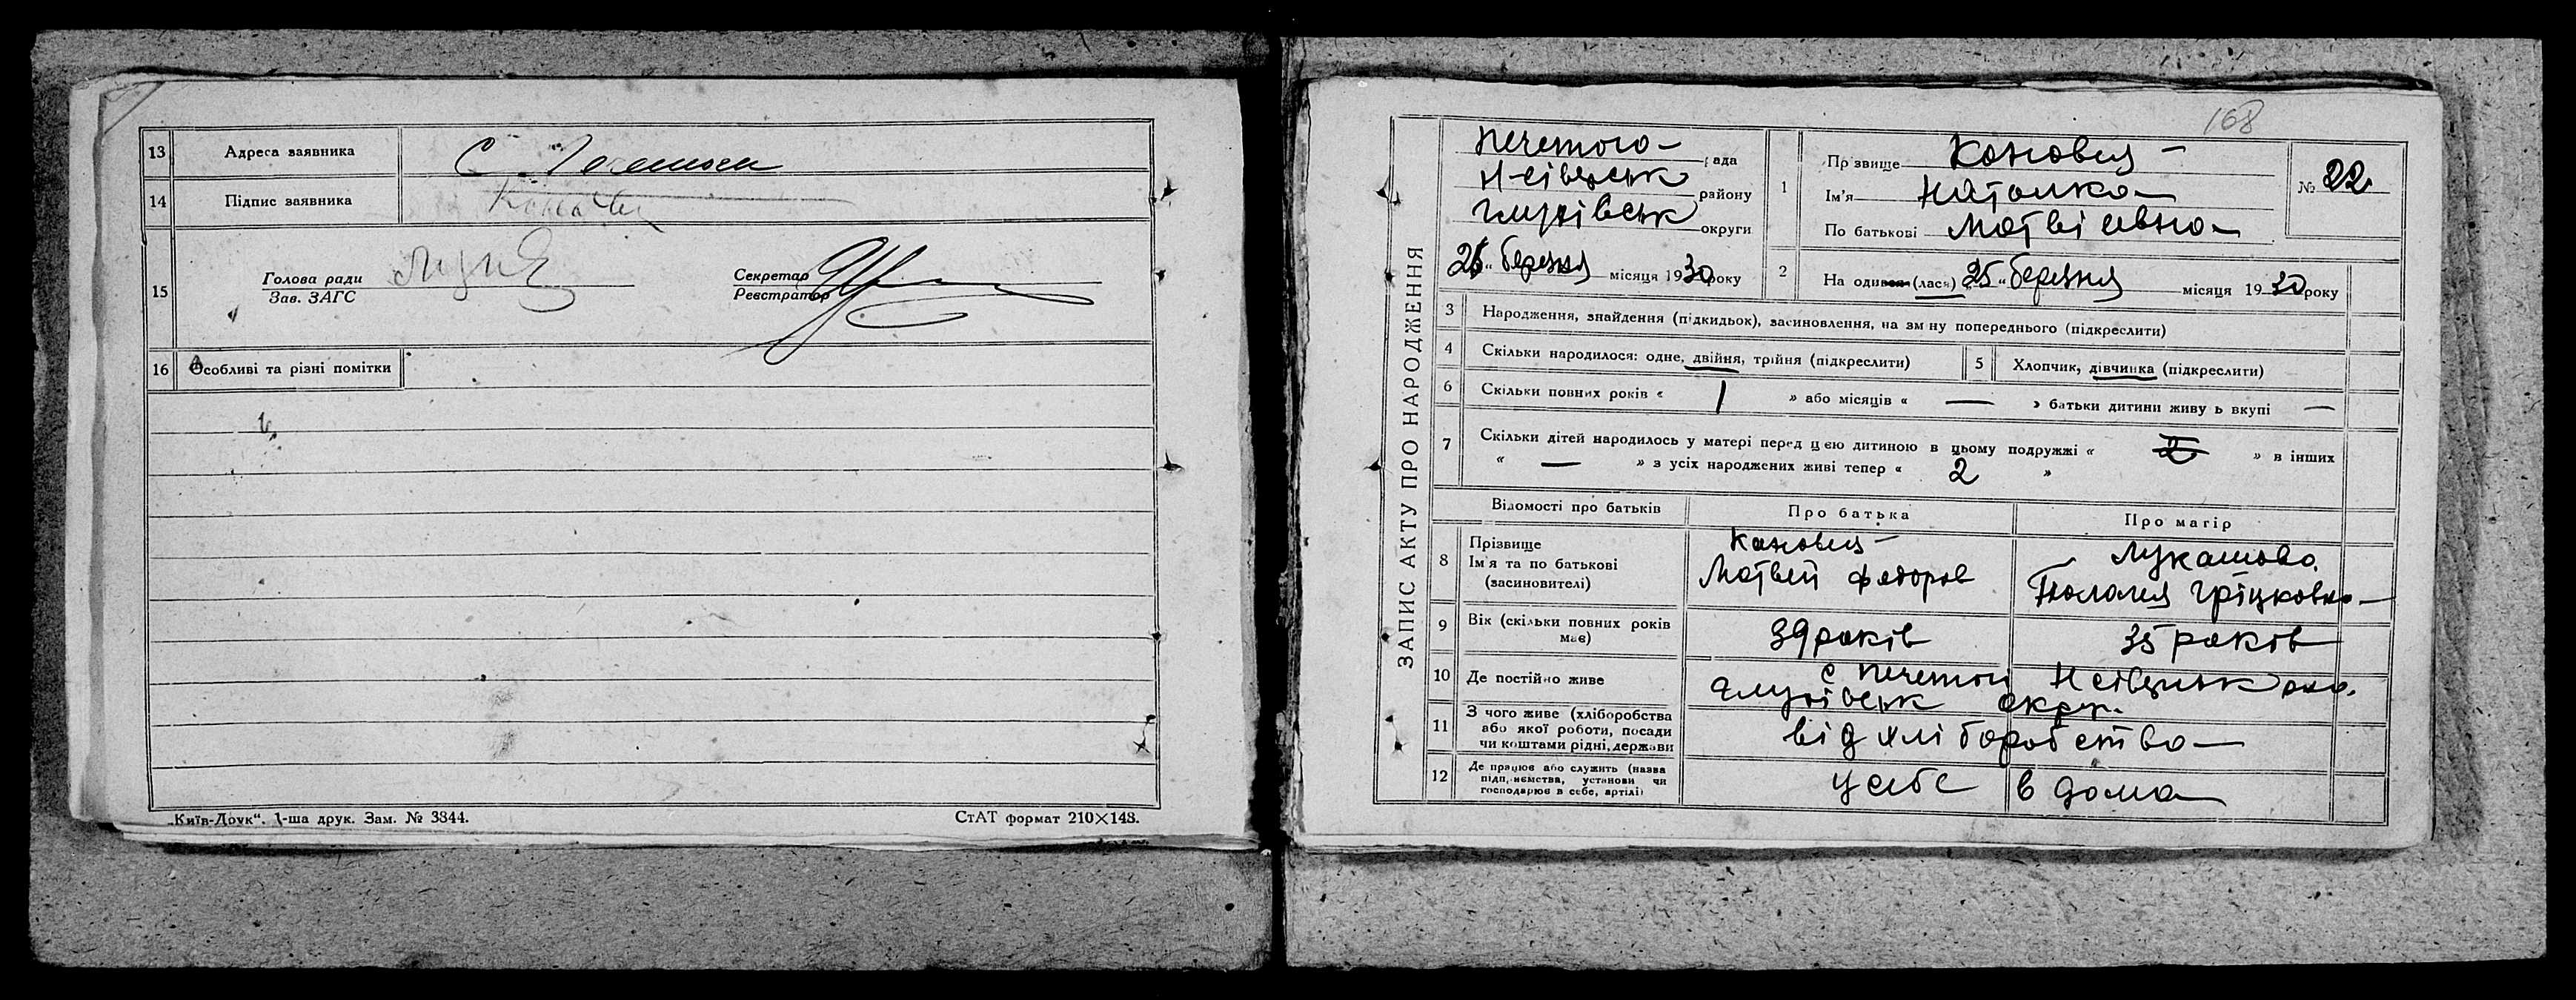 13 Адреса заявника С.
14 Підпис заявника
15 Голова ради
Зав. ЗАГС
Секретар
Реєстратор
16 Особливі та різні помітки
„Київ-Друк“. 1-ша друк. Зам. № 3844.
СтАТ формат 210×148.
168
ЗАПИС АКТУ ПРО НАРОДЖЕННЯ
рада
району
округи
26 „ березня місяця 1930 року
1 Прізвище
Ім'я Наталка
По батькові Матвієвна
№ 22
2 На одився (лася) 25 „ березня місяця 1930 року
3 Народження, знайдення (підкидьок), засиновлення, на зміну попереднього (підкреслити)
4 Скільки народилося: одне, двійня, трійня (підкреслити)
5 Хлопчик, дівчинка (підкреслити)
6 Скільки повних років « 1 » або місяців « — » батьки дитини живуть вкупі —
7 Скільки дітей народилось у матері перед цією дитиною в цьому подружжі « 2 » в інших
« — » з усіх народжених живі тепер « 2 »
Відомості про батьків
Про батька
Про матір
8 Прізвище
Ім'я та по батькові
(засиновителі)
Матвей Федоров
Лукашова
Грицковна
9 Вік (скільки повних років
має)
39 років
35 років
10 Де постійно живе
с
округ.
11 З чого живе (хліборобства
або якої роботи, посади
чи коштами рідні, держави
від хліборобства
12 Де працює або служить (назва
підприємства, установи чи
господарює в себе, артілі)
у себе в дома